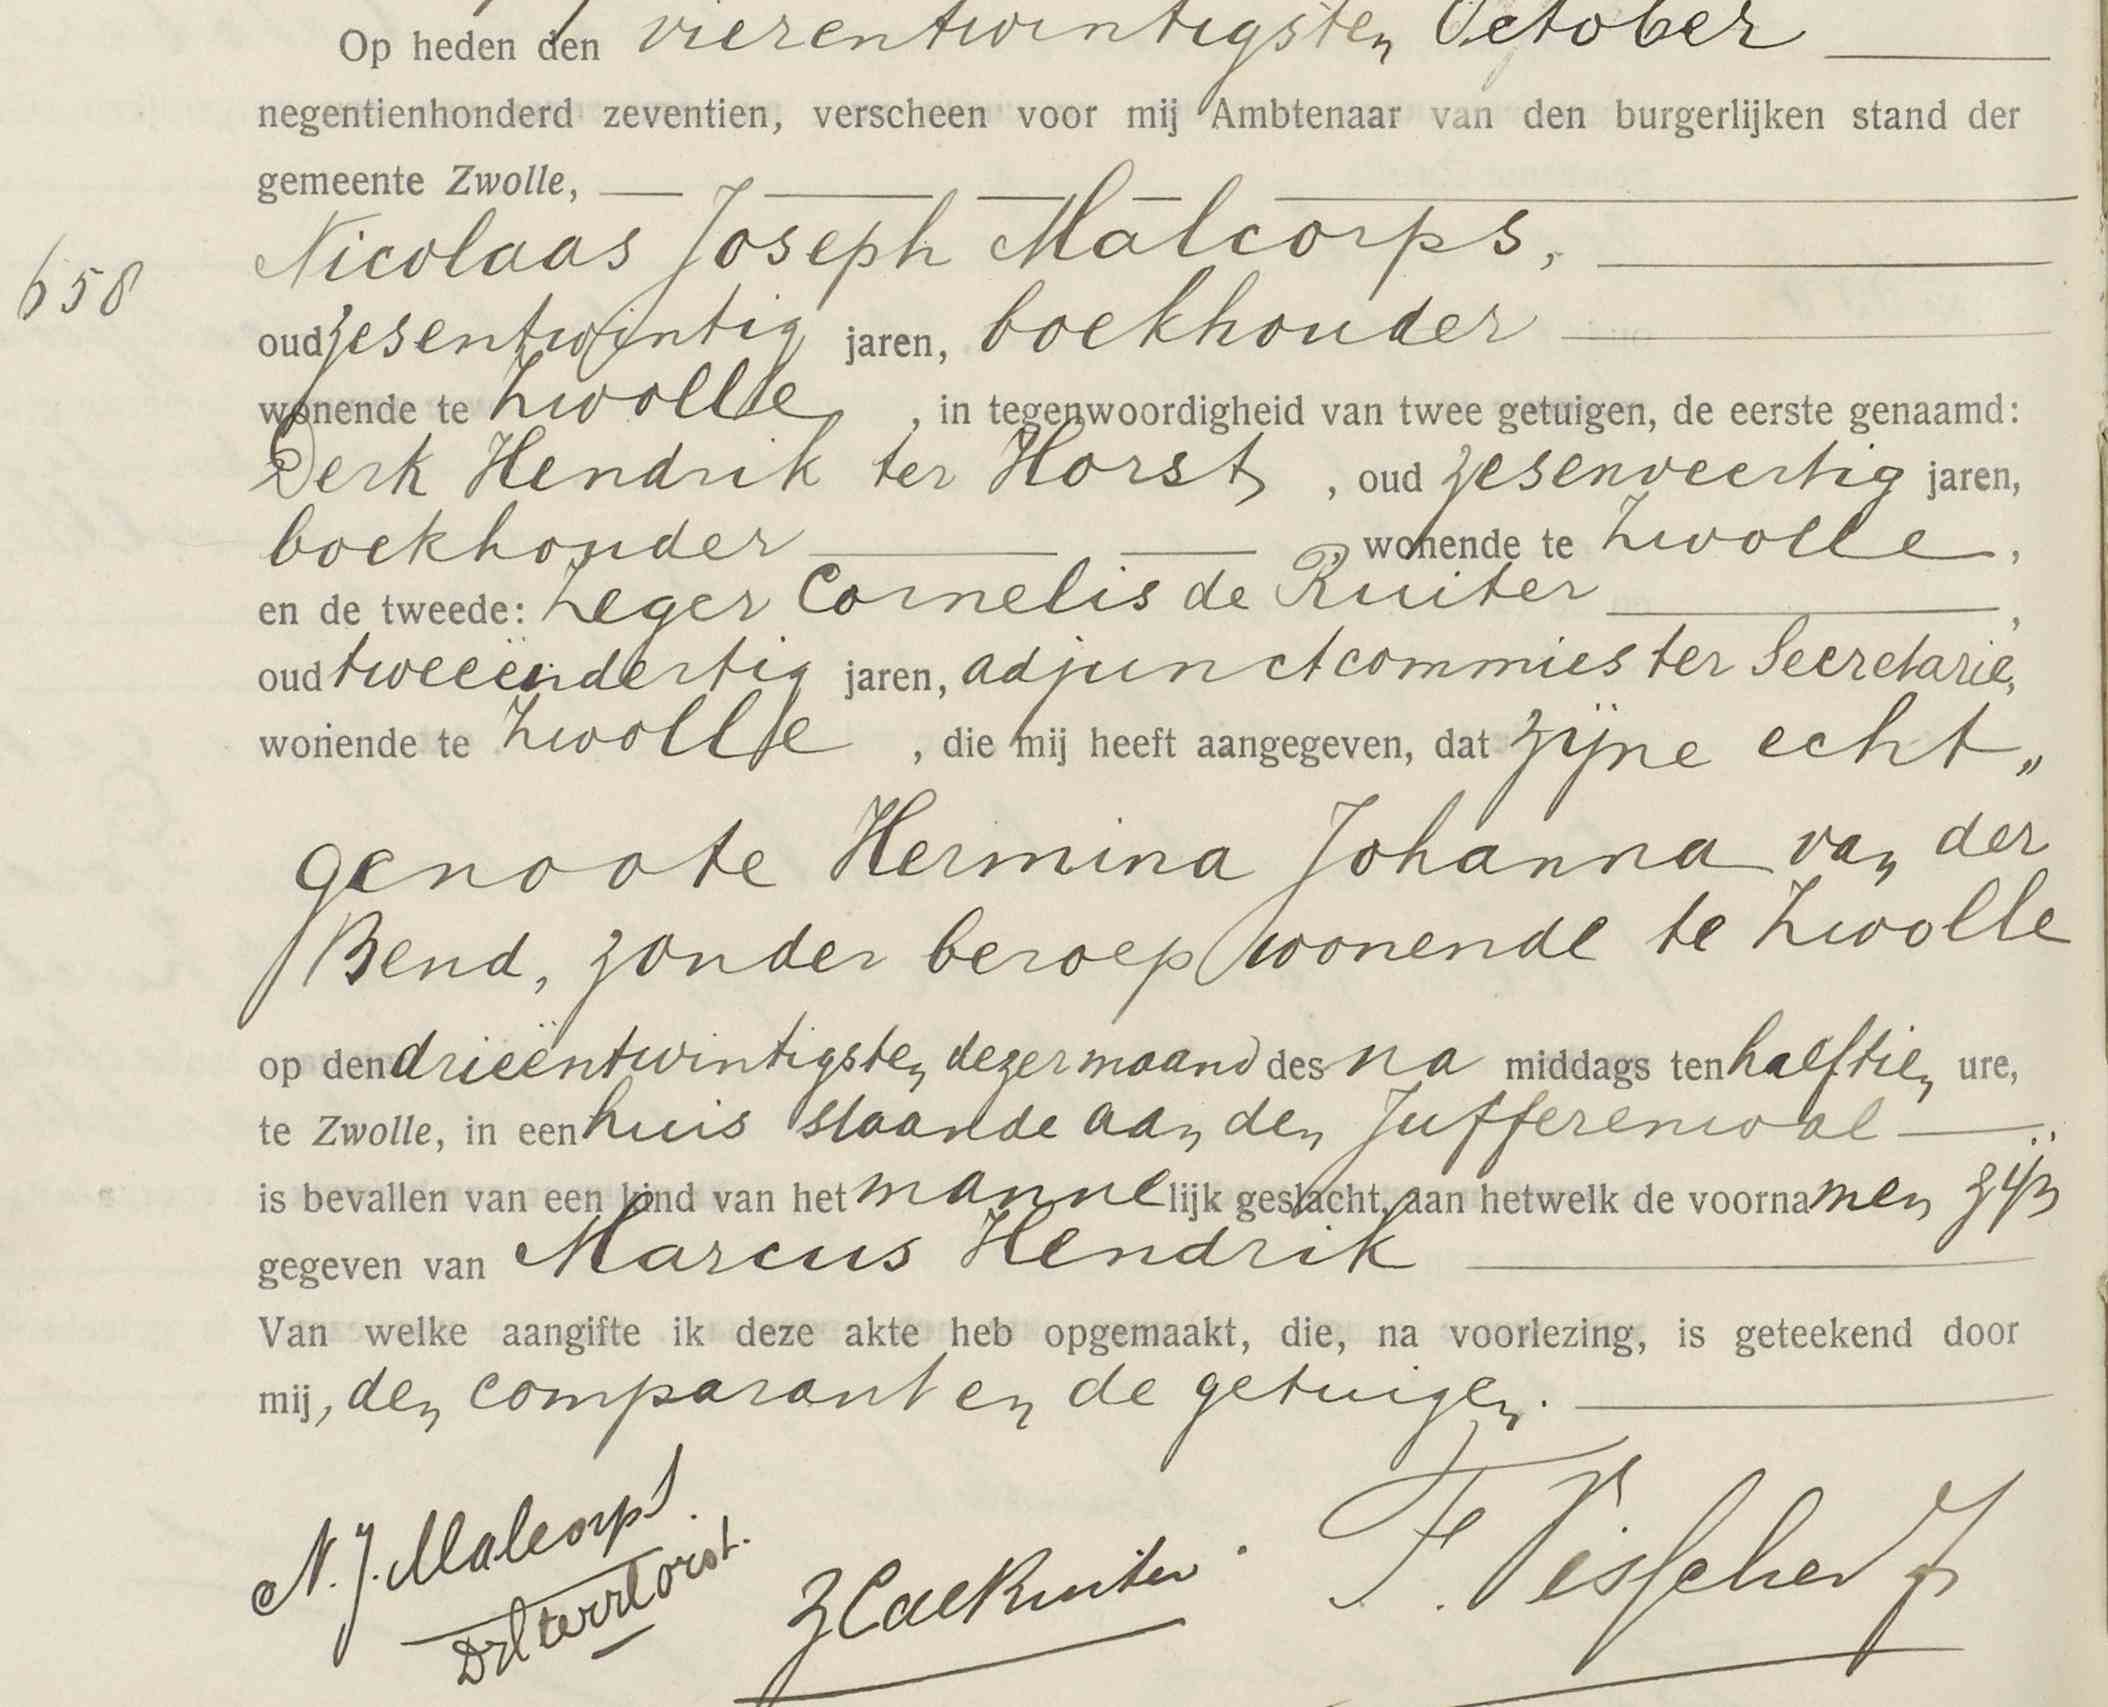 Op heden den vierentwintigsten October
negentienhonderd zeventien, verscheen voor mij Ambtenaar van den burgerlijken stand der
gemeente Zwolle,
Nicolaas Joseph Malcorps,
658
oud zesentwintig jaren, boekhouder
wonende te Zwolle, in tegenwoordigheid van twee getuigen, de eerste genaamd:
Derk Hendrik ter Horst, oud zesenveertig jaren,
boekhouder, wonende te Zwolle,
en de tweede: Zeger Cornelis de Ruiter,
oud tweeëndertig jaren, adjunctcommies ter Secretarie,
wonende te Zwolle, die mij heeft aangegeven, dat zijne echt„
genoote Hermina Johanna van der
Bend, zonder beroep wonende te Zwolle
op den drieëntwintigsten dezer maand des na middags ten halftien ure,
te Zwolle, in een huis staande aan den Jufferenwal
is bevallen van een kind van het mannelijk geslacht, aan hetwelk de voornamen zijn
gegeven van Marcus Hendrik
Van welke aangifte ik deze akte heb opgemaakt, die, na voorlezing, is geteekend door
mij, den comparant en de getuigen.
N. J. Malcorps.
DHterHorst.
ZCdeRuiter
F. Visscher